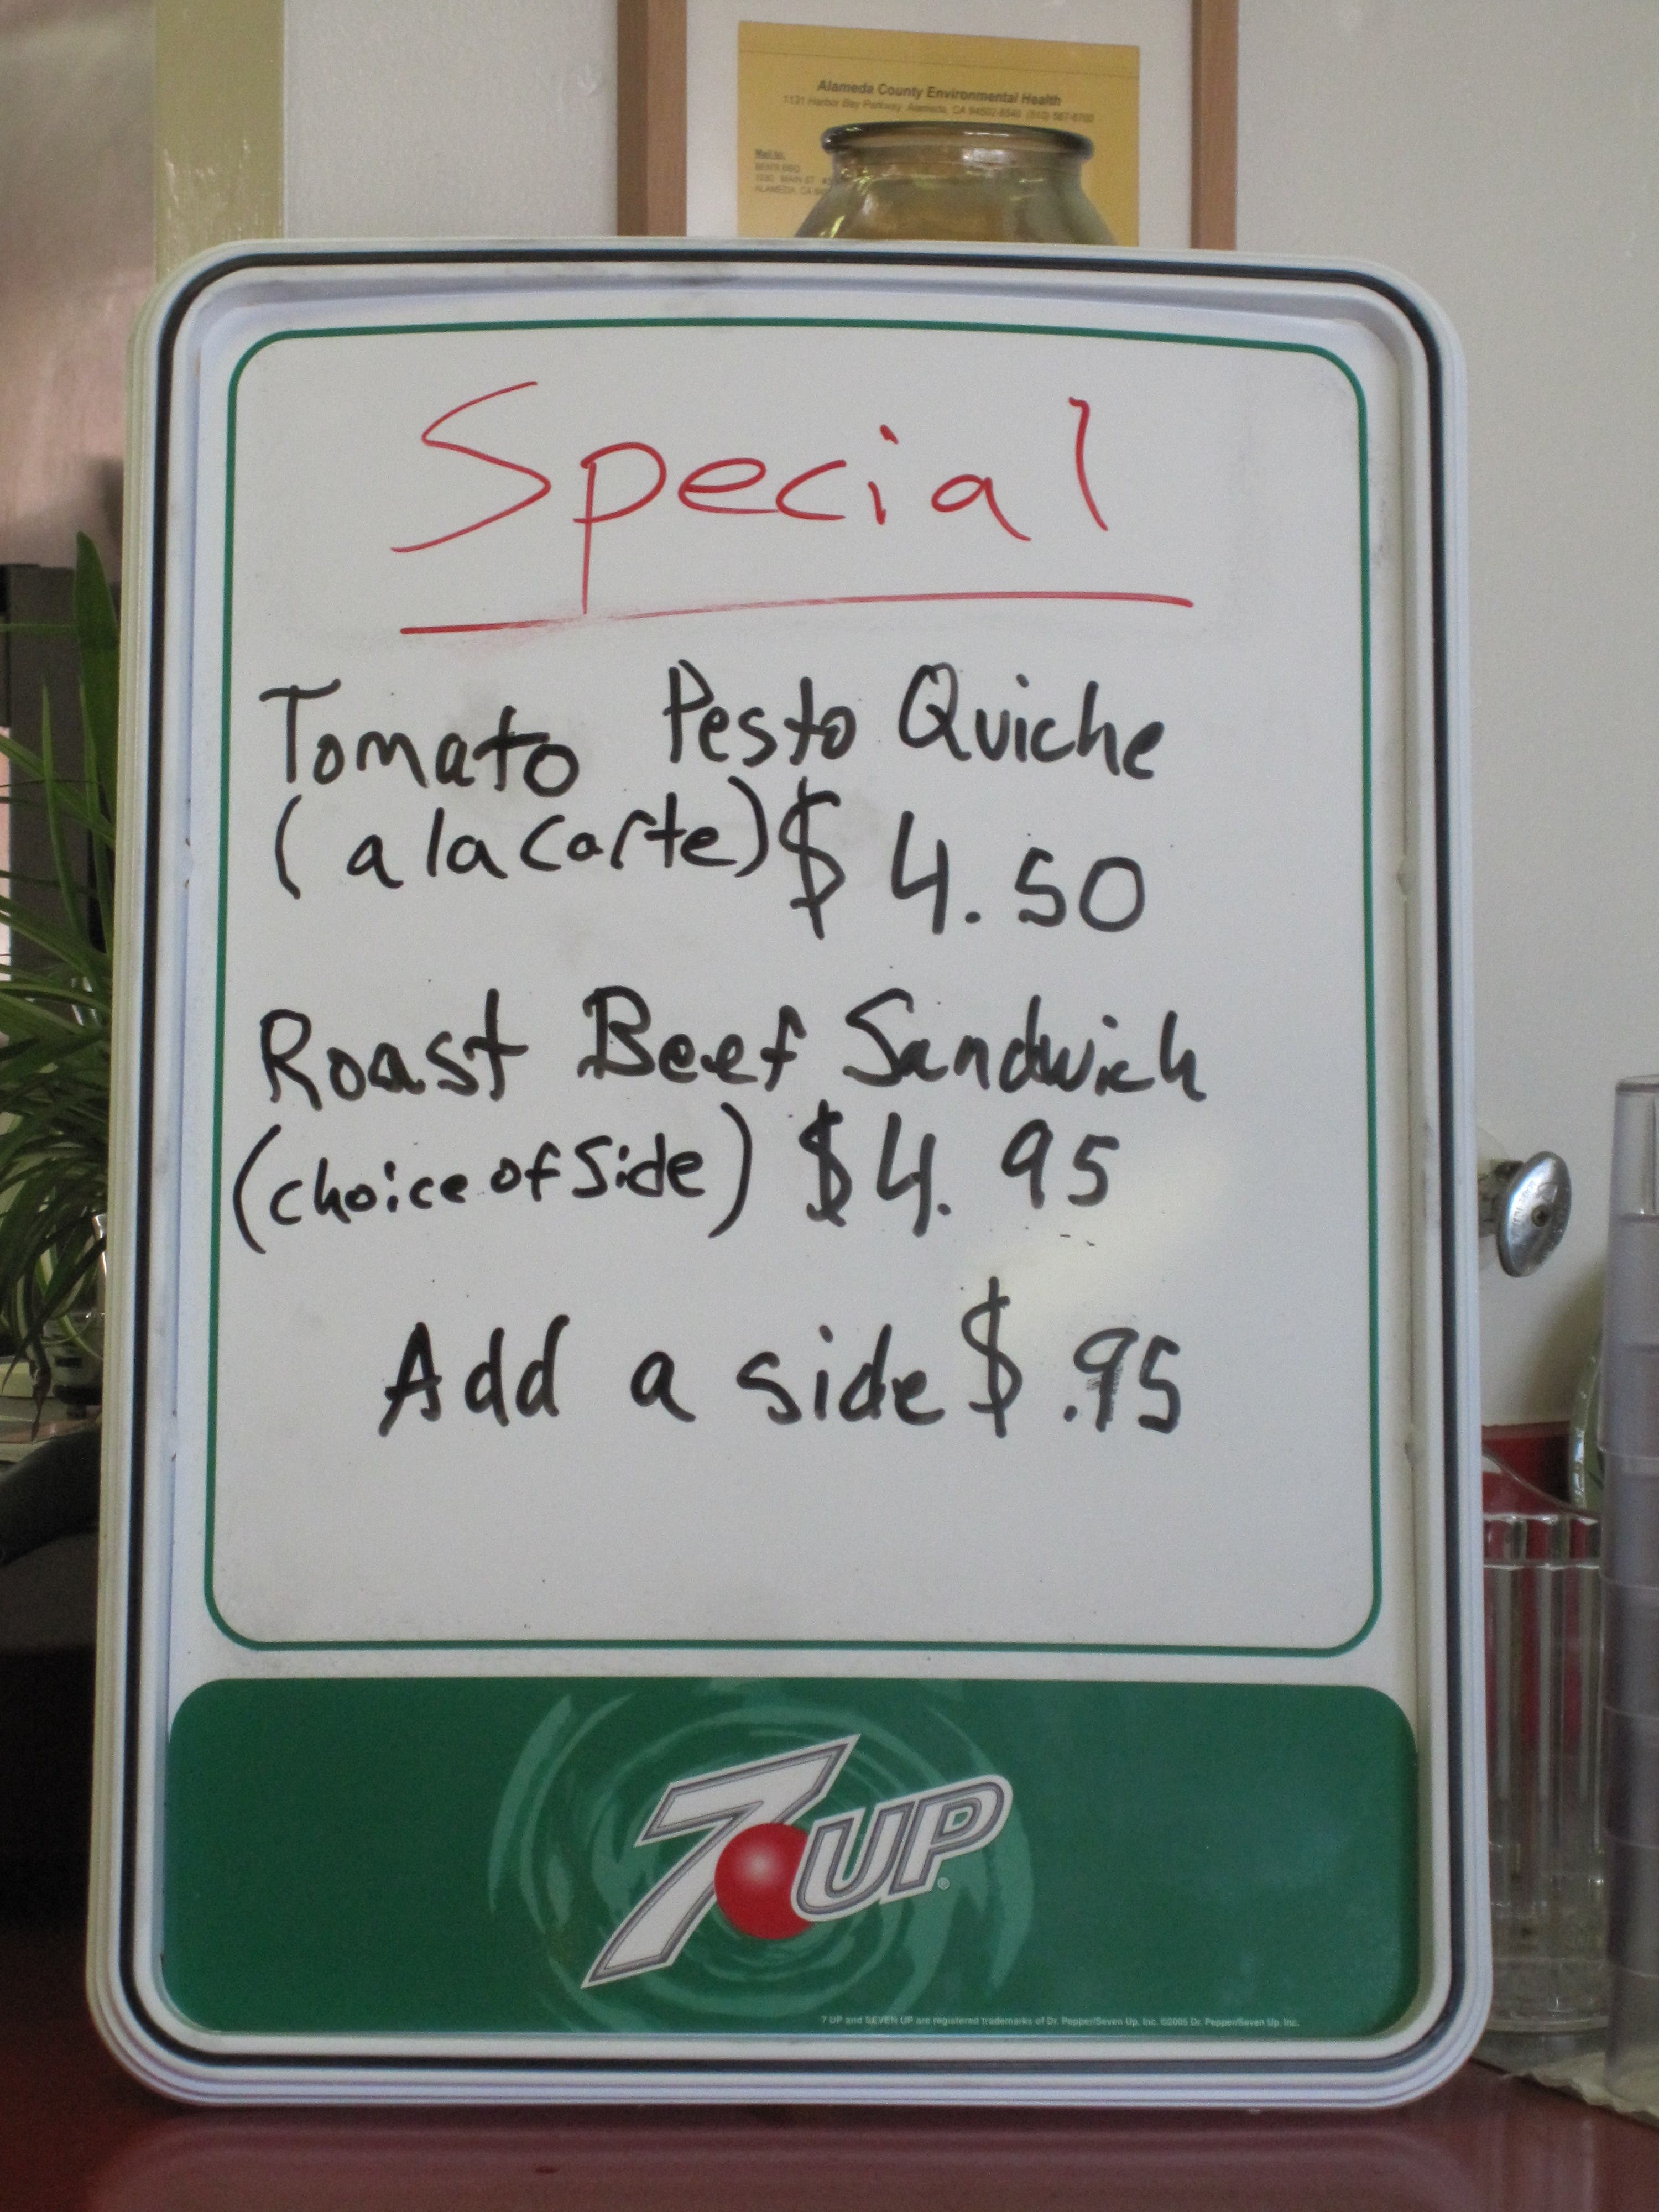 Alameda County Environmental Health
1131 Harbor Bay Parkway Alameda, CA 94502-6540 (510) 567-6700
Mail to:
ALAMEDA, CA
Special
Tomato Pesto Quiche
(a la carte) $ 4.50
Roast Beef Sandwich
(choice of Side) $4.95
Add a side $.95
7UP®
7 UP and SEVEN UP are registered trademarks of Dr. Pepper/Seven Up, Inc. ©2005 Dr. Pepper/Seven Up, Inc.